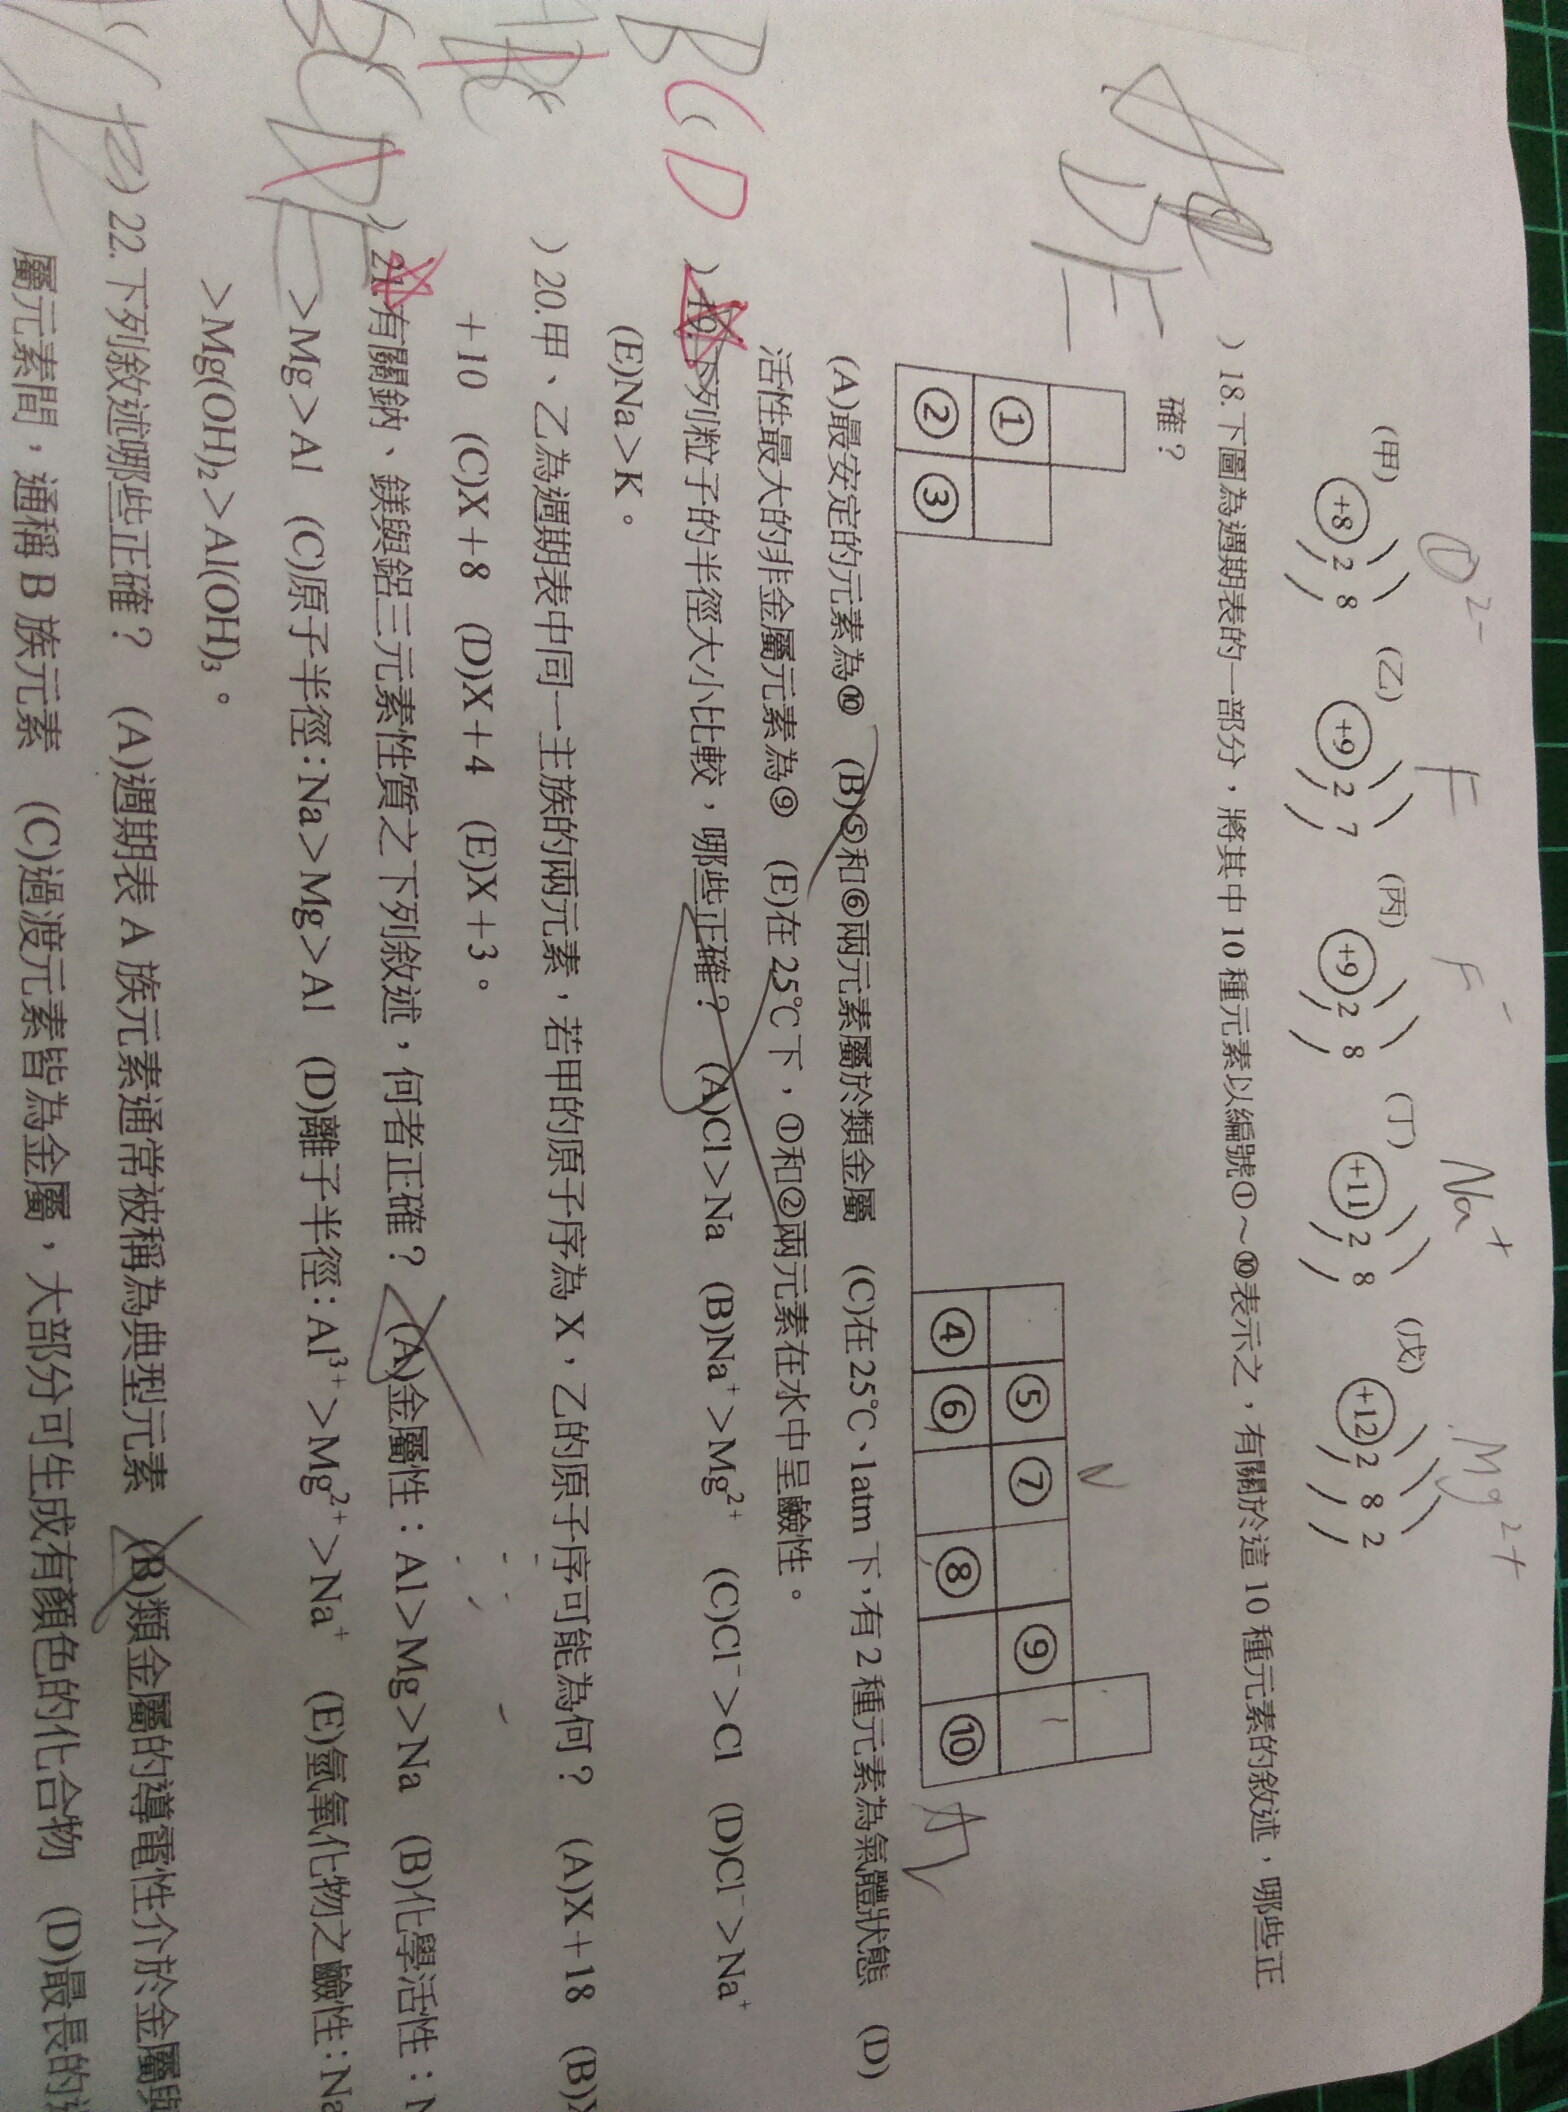 O²⁻ F F⁻ Na⁺ Mg²⁺
(甲) (乙) (丙) (丁) (戊)
+8 2 8 +9 2 7 +9 2 8 +11 2 8 +12 2 8 2
DE
) 18.下圖為週期表的一部分,將其中 10 種元素以編號①~⑩表示之,有關於這 10 種元素的敘述,哪些正
確?
N
① ⑤ ⑦ ⑨
② ③ ④ ⑥ ⑧ ⑩ Ar
(A)最安定的元素為⑩ (B)⑤和⑥兩元素屬於類金屬 (C)在 25℃、1atm 下,有 2 種元素為氣體狀態 (D)
活性最大的非金屬元素為⑨ (E)在 25℃下,①和②兩元素在水中呈鹼性。
BCD
) 19.下列粒子的半徑大小比較,哪些正確? (A)Cl>Na (B)Na⁺>Mg²⁺ (C)Cl⁻>Cl (D)Cl⁻>Na⁺
(E)Na>K。
) 20.甲、乙為週期表中同一主族的兩元素,若甲的原子序為 X,乙的原子序可能為何? (A)X+18 (B)X
+10 (C)X+8 (D)X+4 (E)X+3。
) 21.有關鈉、鎂與鋁三元素性質之下列敘述,何者正確? (A)金屬性:Al>Mg>Na (B)化學活性:N
>Mg>Al (C)原子半徑:Na>Mg>Al (D)離子半徑:Al³⁺>Mg²⁺>Na⁺ (E)氫氧化物之鹼性:Na
>Mg(OH)₂>Al(OH)₃。
) 22.下列敘述哪些正確? (A)週期表 A 族元素通常被稱為典型元素 (B)類金屬的導電性介於金屬與
屬元素間,通稱 B 族元素 (C)過渡元素皆為金屬,大部分可生成有顏色的化合物 (D)最長的